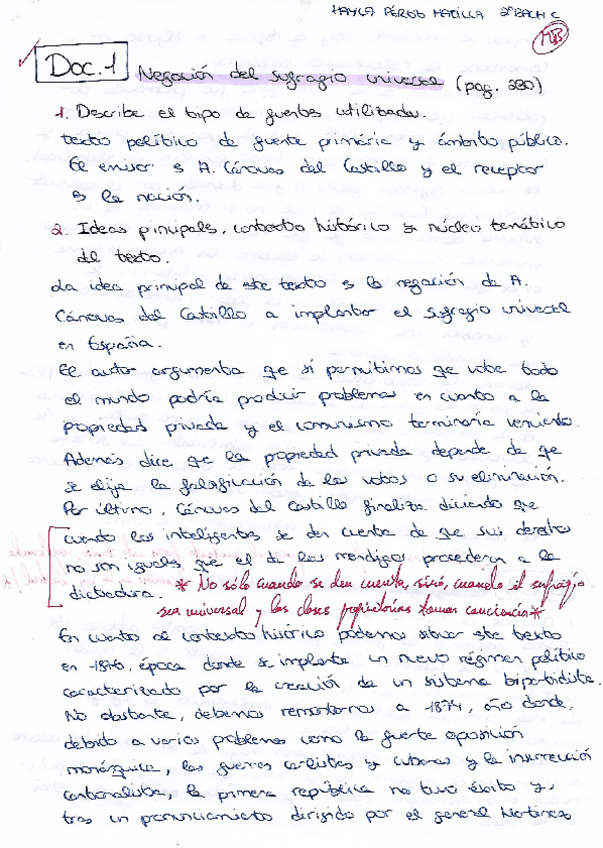 MAYCA PÉREZ MATILLA 2º BACH C
MB
Doc. 1 Negación del sufragio universal (pag. 280)
1. Describe el tipo de fuentes utilizadas.
texto político de fuente primária y ámbito público.
El emisor es A. Cánovas del Castillo y el receptor
es la nación.
2. Ideas prinipales, contexto histórico y núcleo temático
del texto.
La idea principal de este texto es la negación de A.
Cánovas del Castillo a implantar el sufragio universal
en España.
El autor argumenta que si permitimos que vote todo
el mundo podría producir problemas en cuanto a la
propiedad privada y el comunismo terminaría venciendo.
Además dice que la propiedad privada depende de que
se elija la falsificación de los votos o su eliminación.
Por último, Cánovas del Castillo finaliza diciendo que
cuando los inteligentes se den cuenta de que sus derechos
no son iguales que el de los mendigos procederan a la
dictadura. * No sólo cuando se den cuenta, sinó, cuando el sufragio
sea universal y las clases propietarias toman conciencia*
En cuanto al contexto histórico podemos situar este texto
en 1876, época donde se implanta un nuevo régimen político
caracterizado por la creación de un sistema bipartidista.
No obstante, debemos remontarnos a 1874, año donde,
debido a varios problemas como la fuerte oposición
monárquica, las guerras carlistas y cubanas y la insurrección
cantonalista, la primera república no tuvo éxito y,
tras un pronunciamiento dirigido por el general Martínez